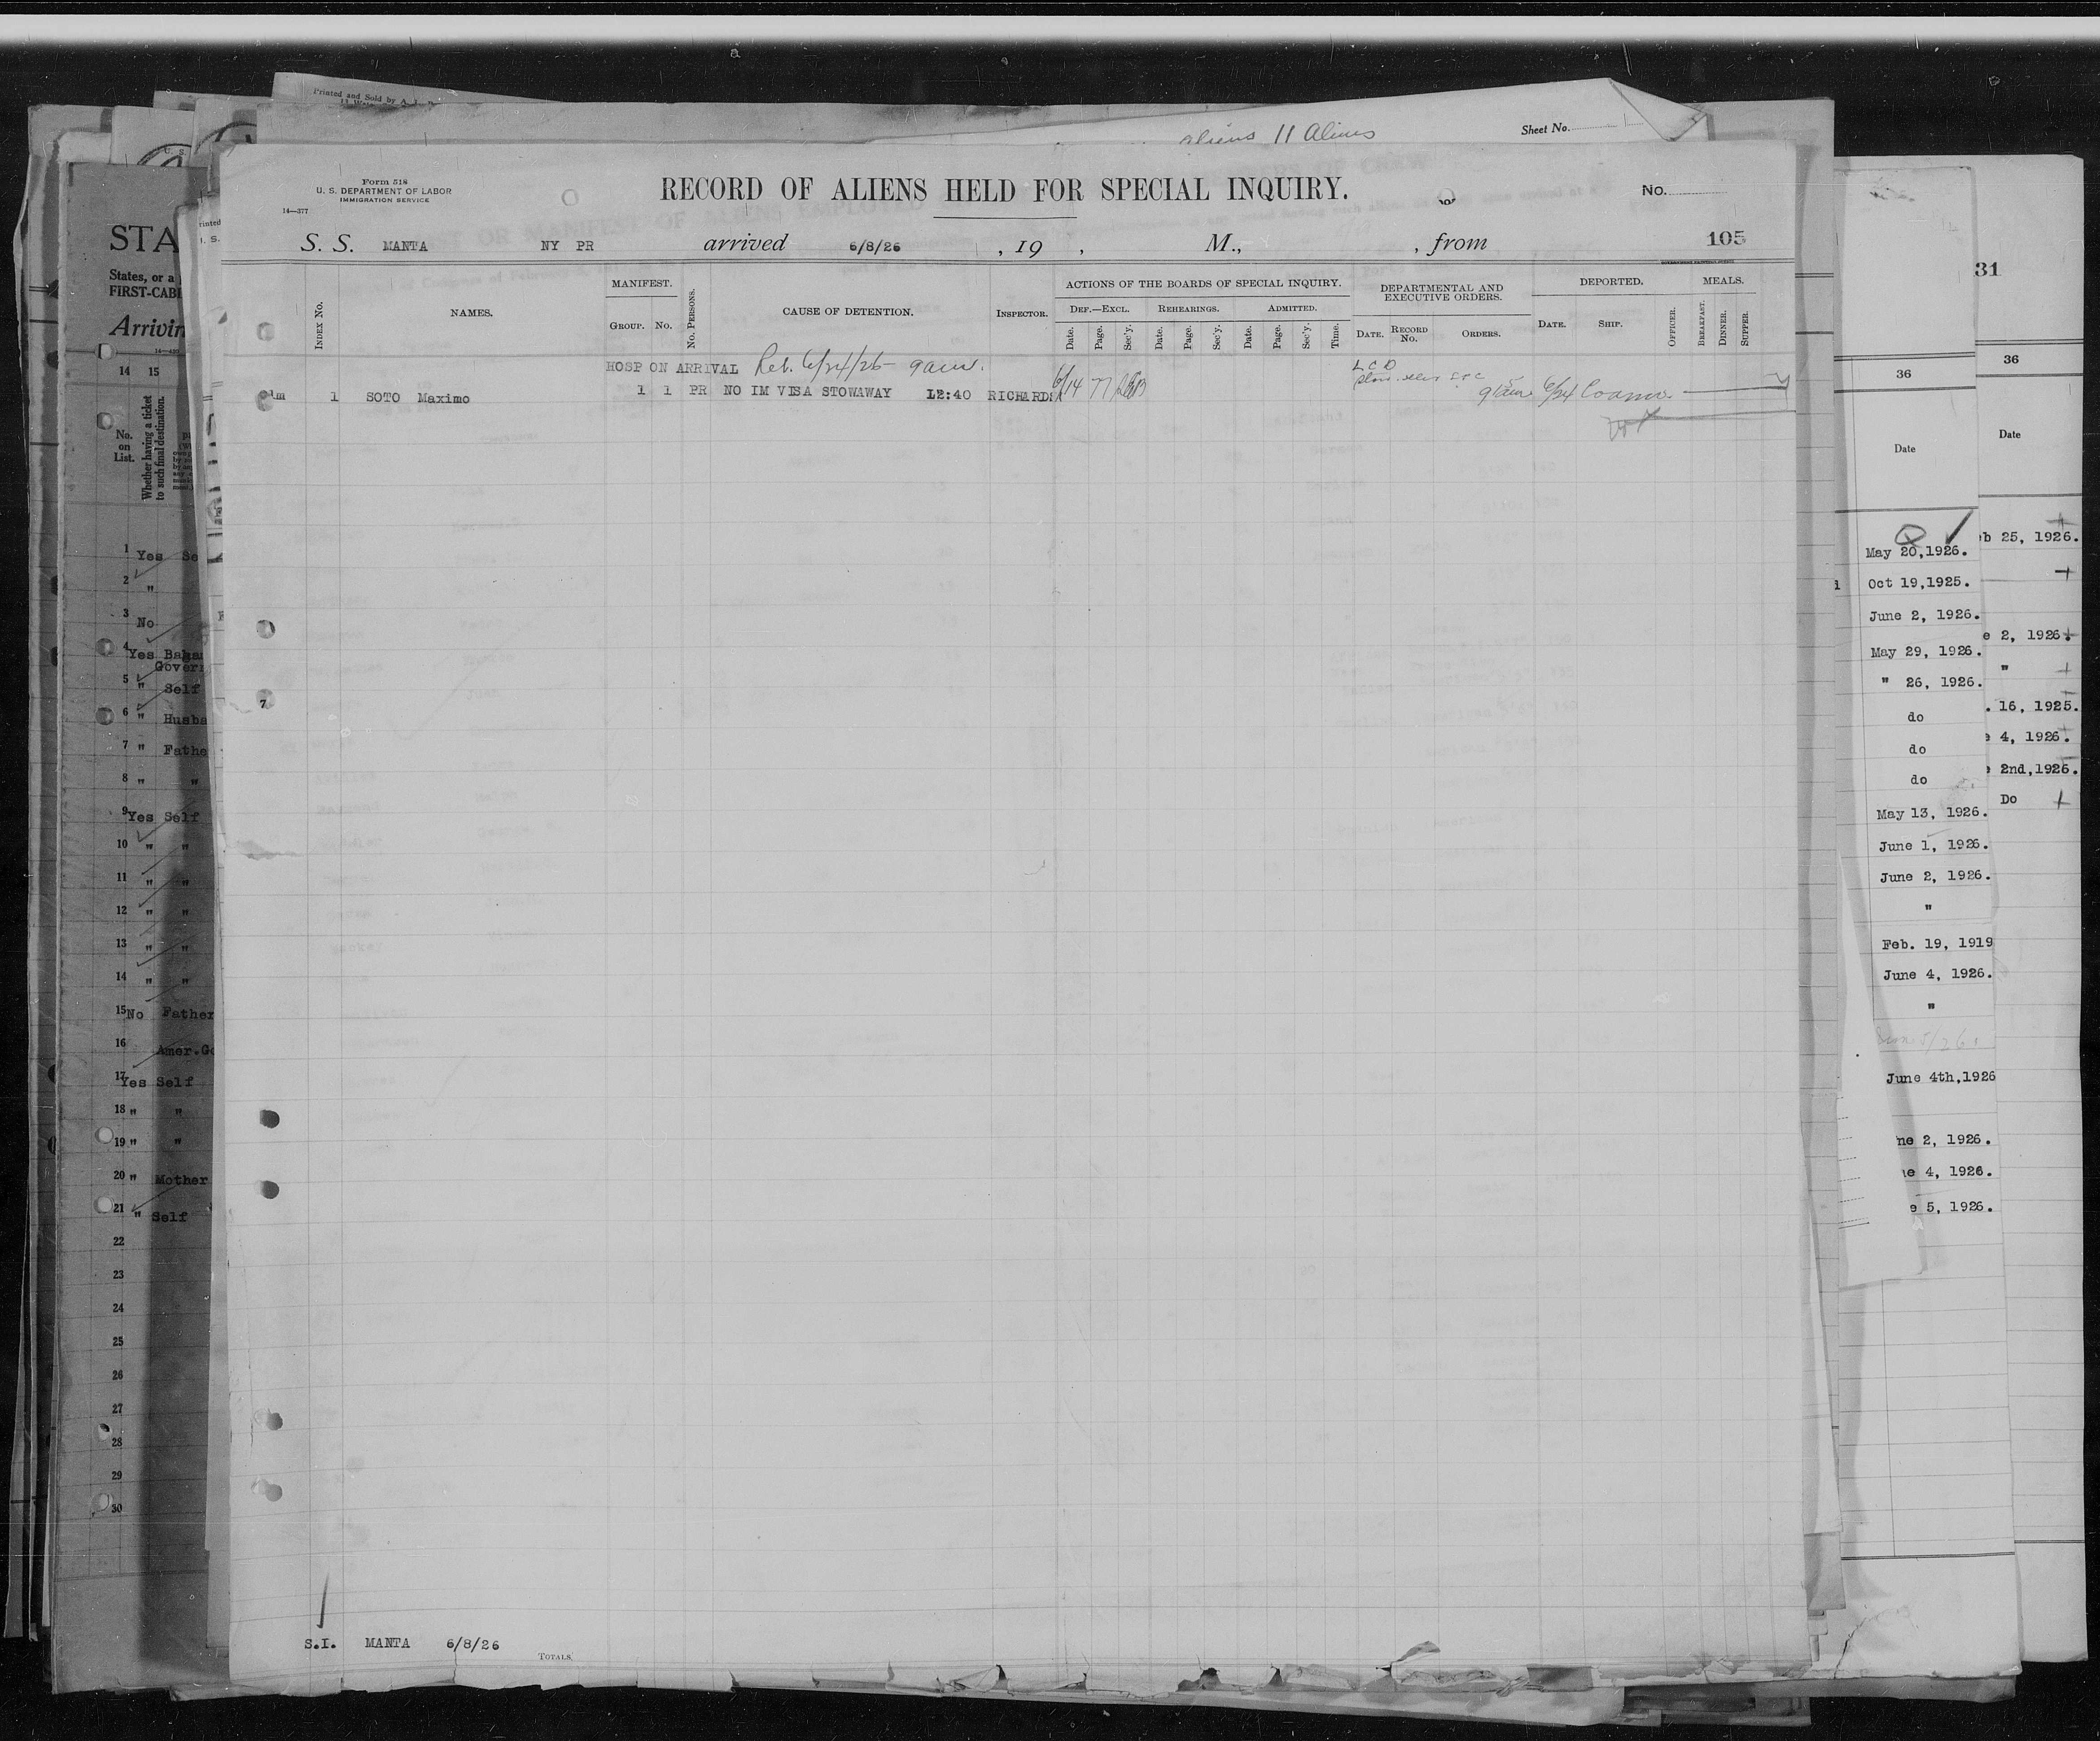 Printed and Sold by A.
aliens 11 Aliens
Sheet No.
Form 518
U. S. DEPARTMENT OF LABOR
IMMIGRATION SERVICE
14—377
RECORD OF ALIENS HELD FOR SPECIAL INQUIRY.
No.
S. S. MANTA NY PR arrived 6/8/26 , 19 , M., , from 105
INDEX NO.
NAMES.
MANIFEST.
GROUP. NO.
NO. PERSONS.
CAUSE OF DETENTION.
INSPECTOR.
ACTIONS OF THE BOARDS OF SPECIAL INQUIRY.
DEF.—EXCL. REHEARINGS. ADMITTED.
Date. Page. Sec'y. Date. Page. Sec'y. Date. Page. Sec'y. Time.
DEPARTMENTAL AND
EXECUTIVE ORDERS.
DATE. RECORD NO. ORDERS.
DEPORTED.
DATE. SHIP.
OFFICER.
MEALS.
BREAKFAST. DINNER. SUPPER.
HOSP ON ARRIVAL Rel. 6/24/26 9am. L C D
1 SOTO Maximo 1 1 PR NO IM VISA STOWAWAY 12:40 RICHARDS 6/14 77 9am 6/24 Coamo
7
S.I. MANTA 6/8/26
TOTALS.
STA
States, or a
FIRST-CABI
Arrivin
14 15
No.
on
List.
Whether having a ticket
to such final destination.
1 Yes Se
2 "
3 No
4 Yes Baga
Gover
5 " Self
6 " Husba
7 " Fathe
8 " "
9 Yes Self
10 " "
11 " "
12 " "
13 " "
14 " "
15 No Father
16 Amer.Go
17 Yes Self
18 " "
19 " "
20 " Mother
21 " Self
22
23
24
25
26
27
28
29
30
36
Date
May 20,1926.
Oct 19,1925.
June 2, 1926.
May 29, 1926.
" 26, 1926.
do
do
do
May 13, 1926.
June 1, 1926.
June 2, 1926.
"
Feb. 19, 1919
June 4, 1926.
"
June 4th,1926
ne 2, 1926.
e 4, 1926.
e 5, 1926.
31
36
Date
b 25, 1926.
e 2, 1926
"
. 16, 1925.
e 4, 1926.
2nd,1926.
Do